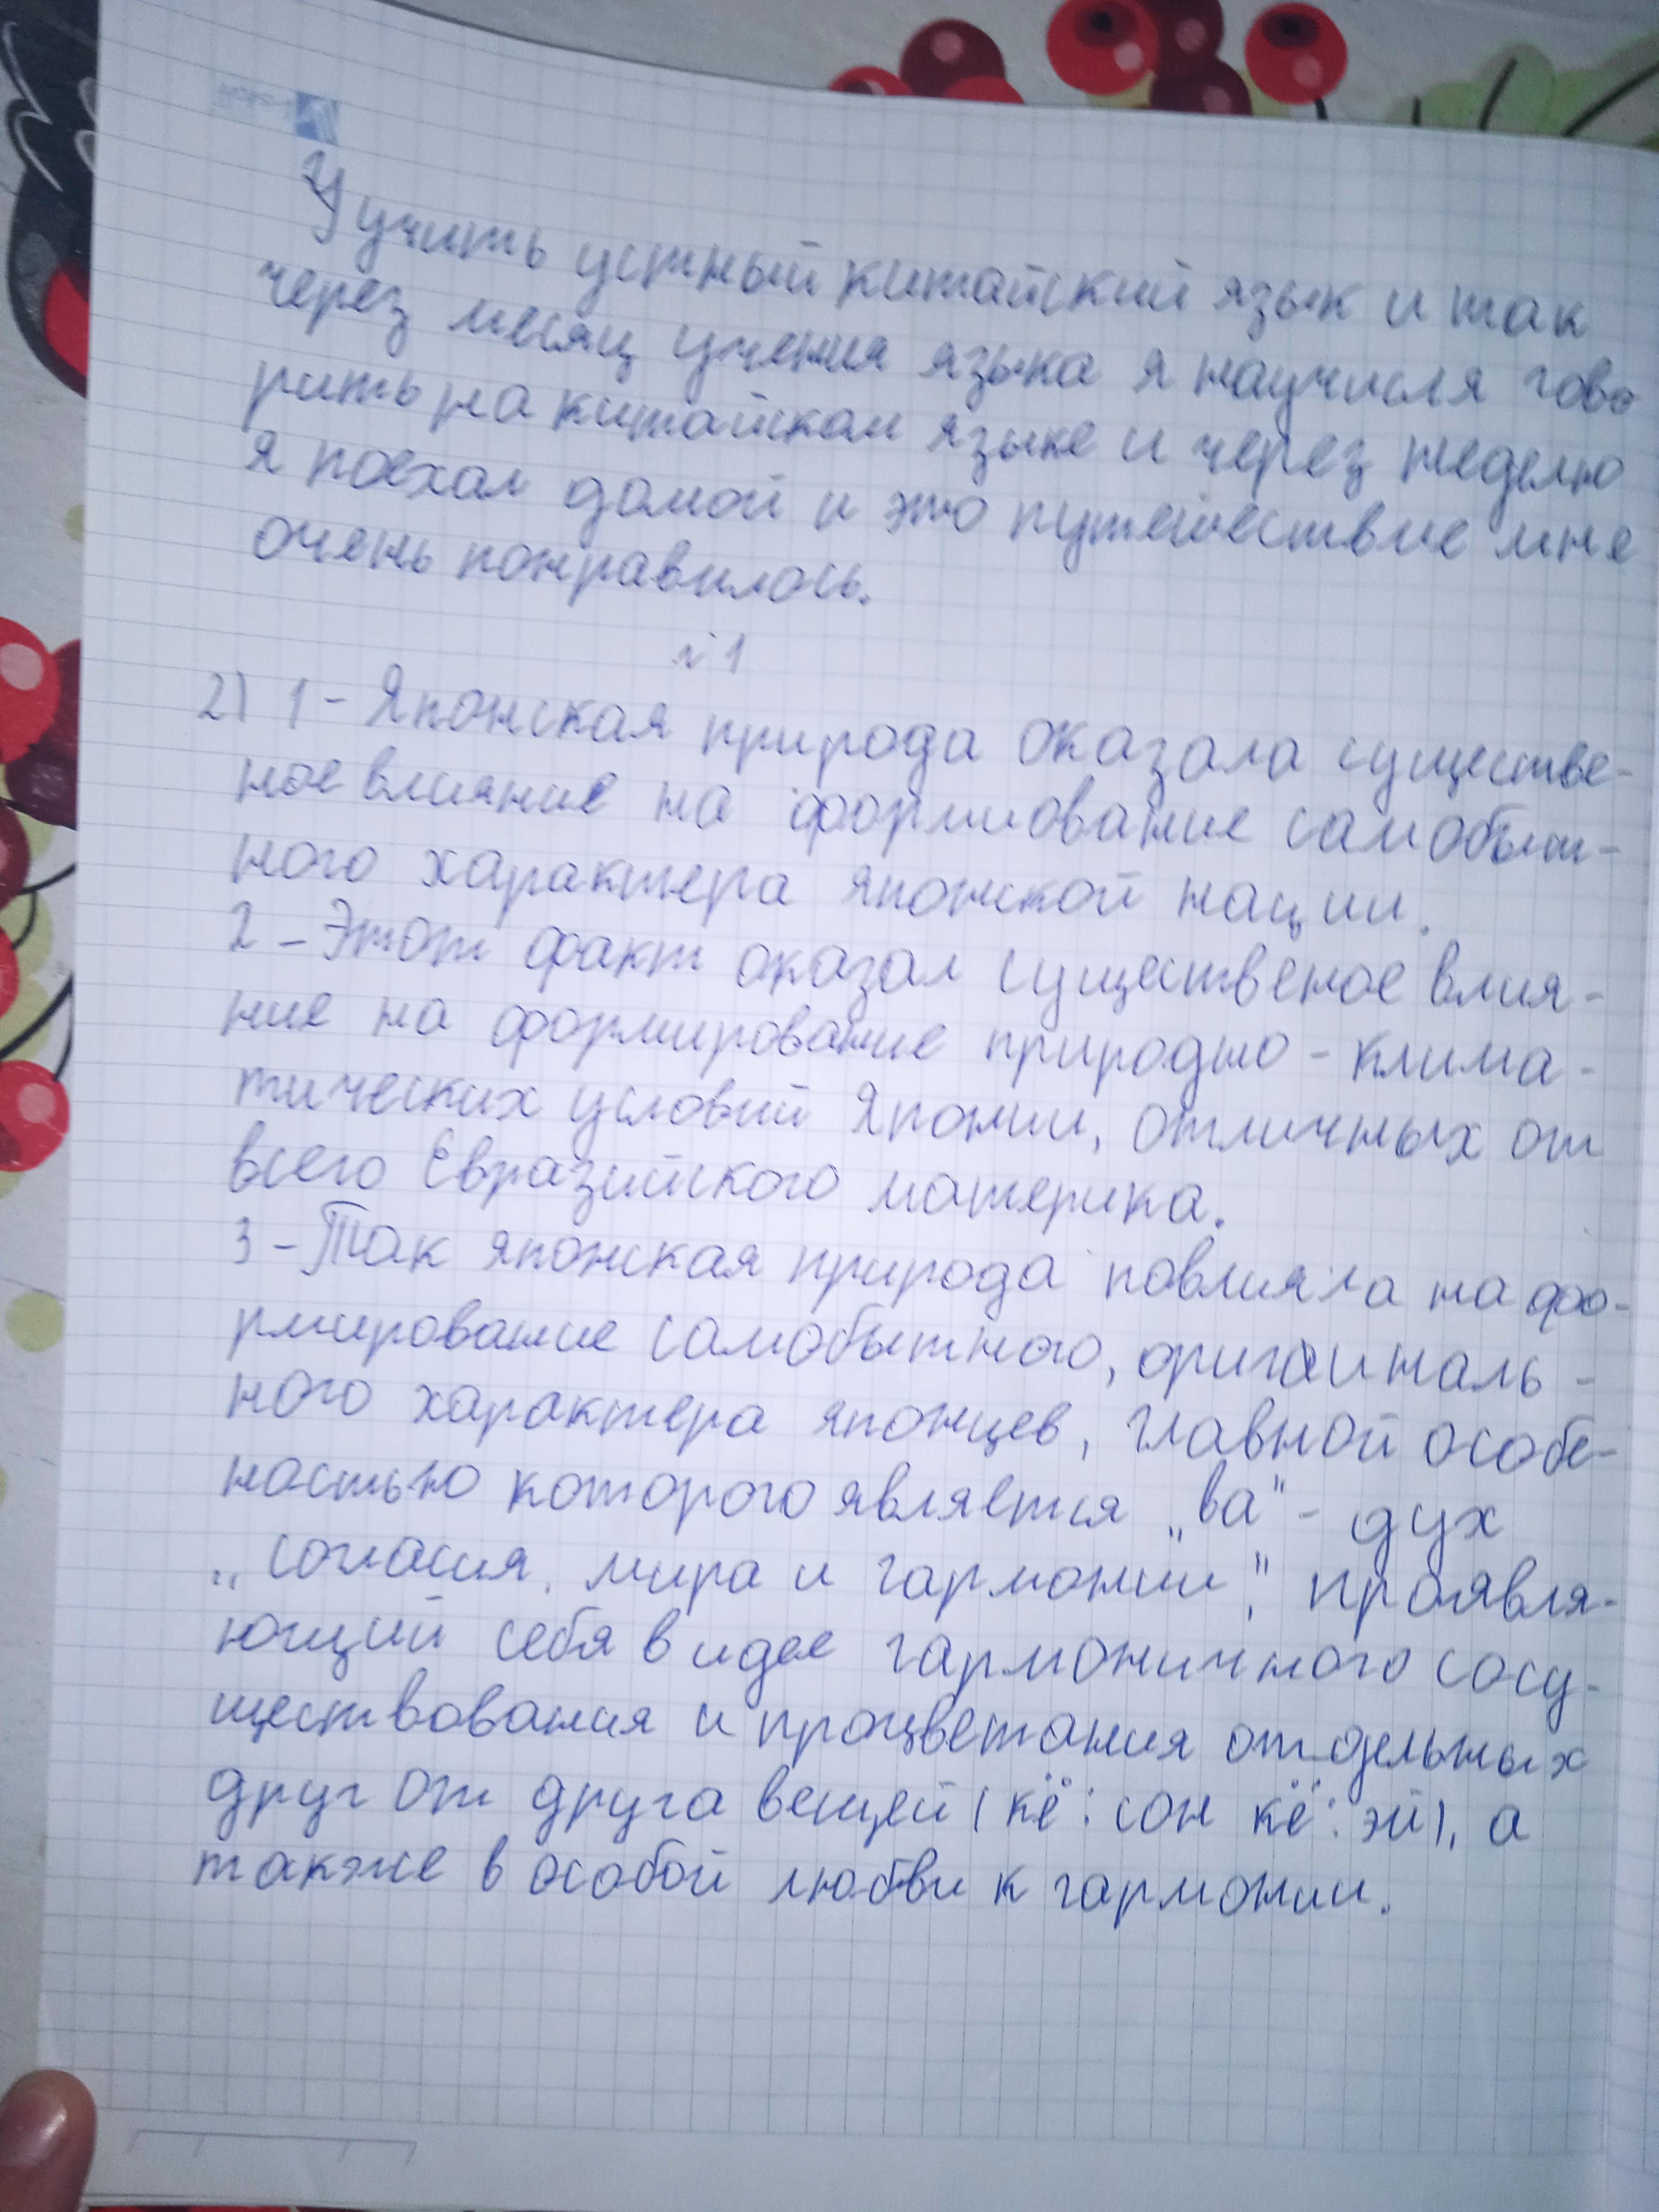 У учить устный китайский язык и так
через месяц учения языка я научися гово
рить на китайском языке и через неделю
я поехал домой и это путешествие мне
очень понравилось.
№1
2) 1 - Японская природа оказала существе-
ное влияние на формиование самобыт-
ного характера японской нации.
2 - Этот факт оказал существеное влия-
ние на формирование природно - клима-
тических условий Японии, отличных от
всего Евразийского материка.
3 - Так японская природа повлияла на фо-
рмирование самобытного, оригиналь-
ного характера японцев, главной особе-
ностью которого является „ва" - дух
„согласия, мира и гармонии", проявля-
ющий себя в идее гармоничного сосу-
ществования и процветания отдельных
друг от друга вещей (кё: сон кё: эй), а
также в особой любви к гармонии.